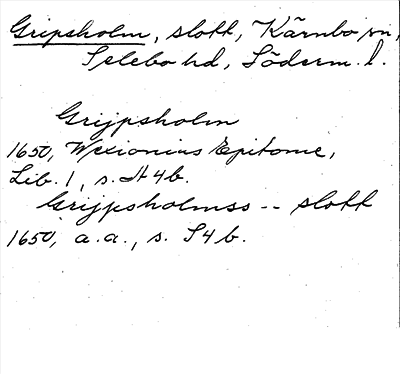 Gripsholm, slott, Kärnbo sn,
Selebo hd, Söderm. l.
Grijpsholm
1650, Wexionius Epitome,
Lib. 1, s. A4b.
Grijpsholmss -- slott
1650, a.a., s. S4b.